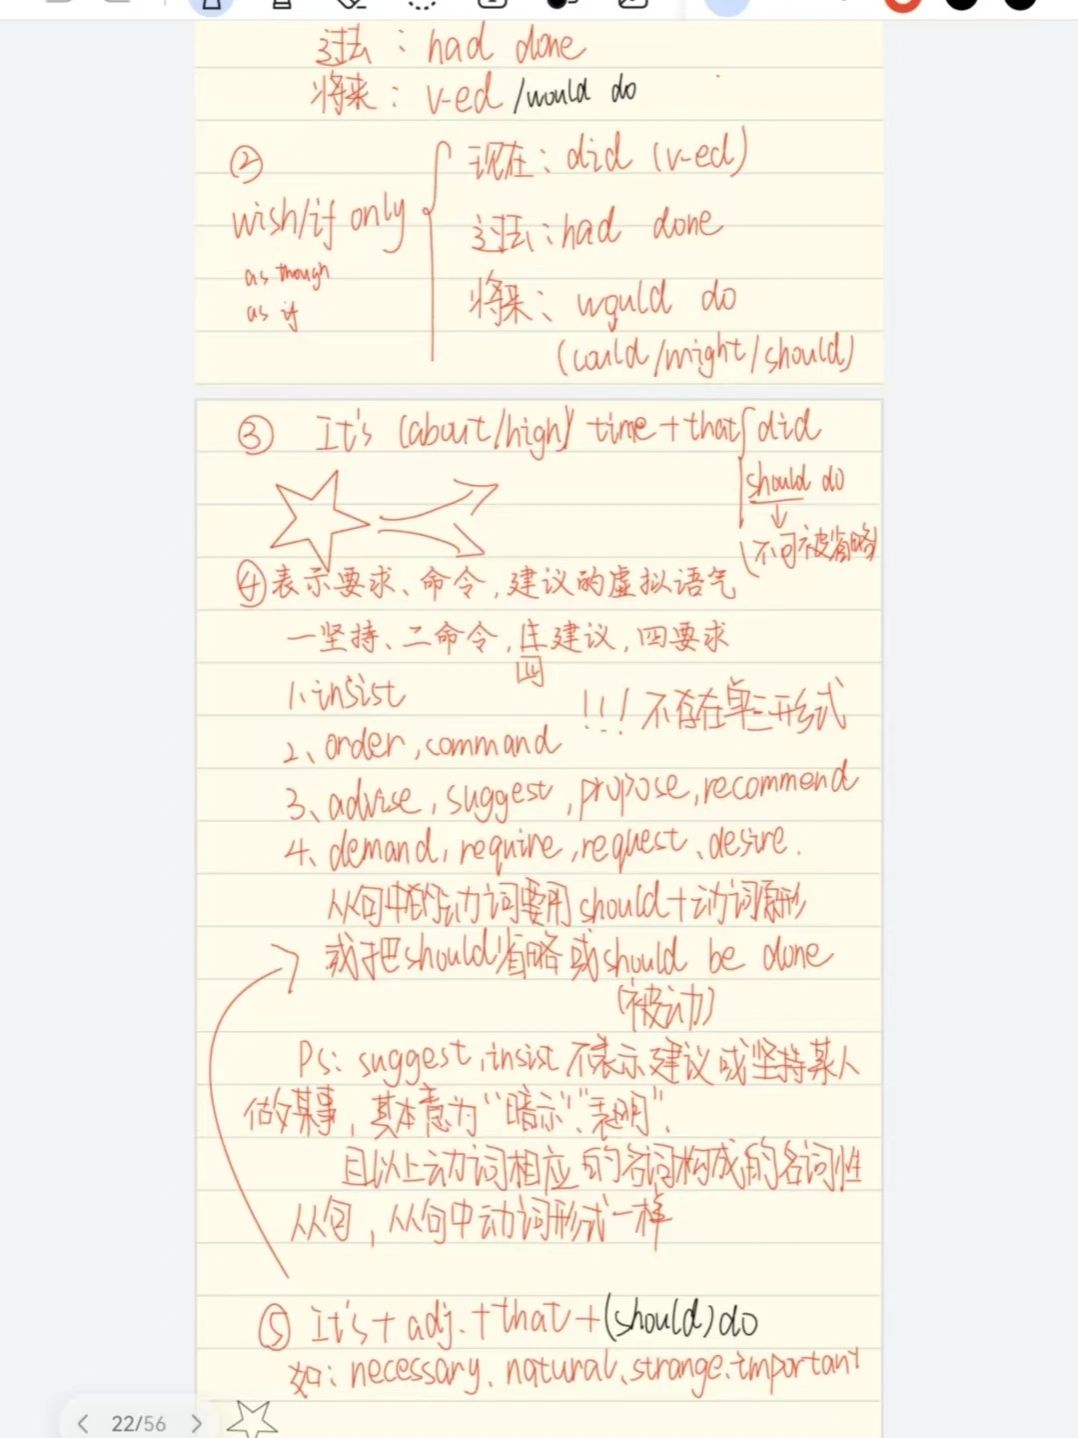 过去：had done
将来：v-ed /would do
②
wish/if only
as though
as if
现在：did (v-ed)
过去：had done
将来：would do
(could/might/should)
③ It's (about/high) time+that did
should do
(不可被省略)
④表示要求、命令,建议的虚拟语气
一坚持、二命令,建议,四要求
四
1.insist
!!!不存在单三形式
2、order,command
3、advise,suggest,propose,recommend
4、demand,require,request、desire.
从句中的动词要用should+动词原形
或把should省略或should be done
(被动)
Ps: suggest,insist不表示建议或坚持某人
做某事,其本意为“暗示”“表明”.
且以上动词相应的名词构成的名词性
从句,从句中动词形式一样
⑤ It's+adj.+that+(should)do
如: necessary、natural、strange.important
22/56